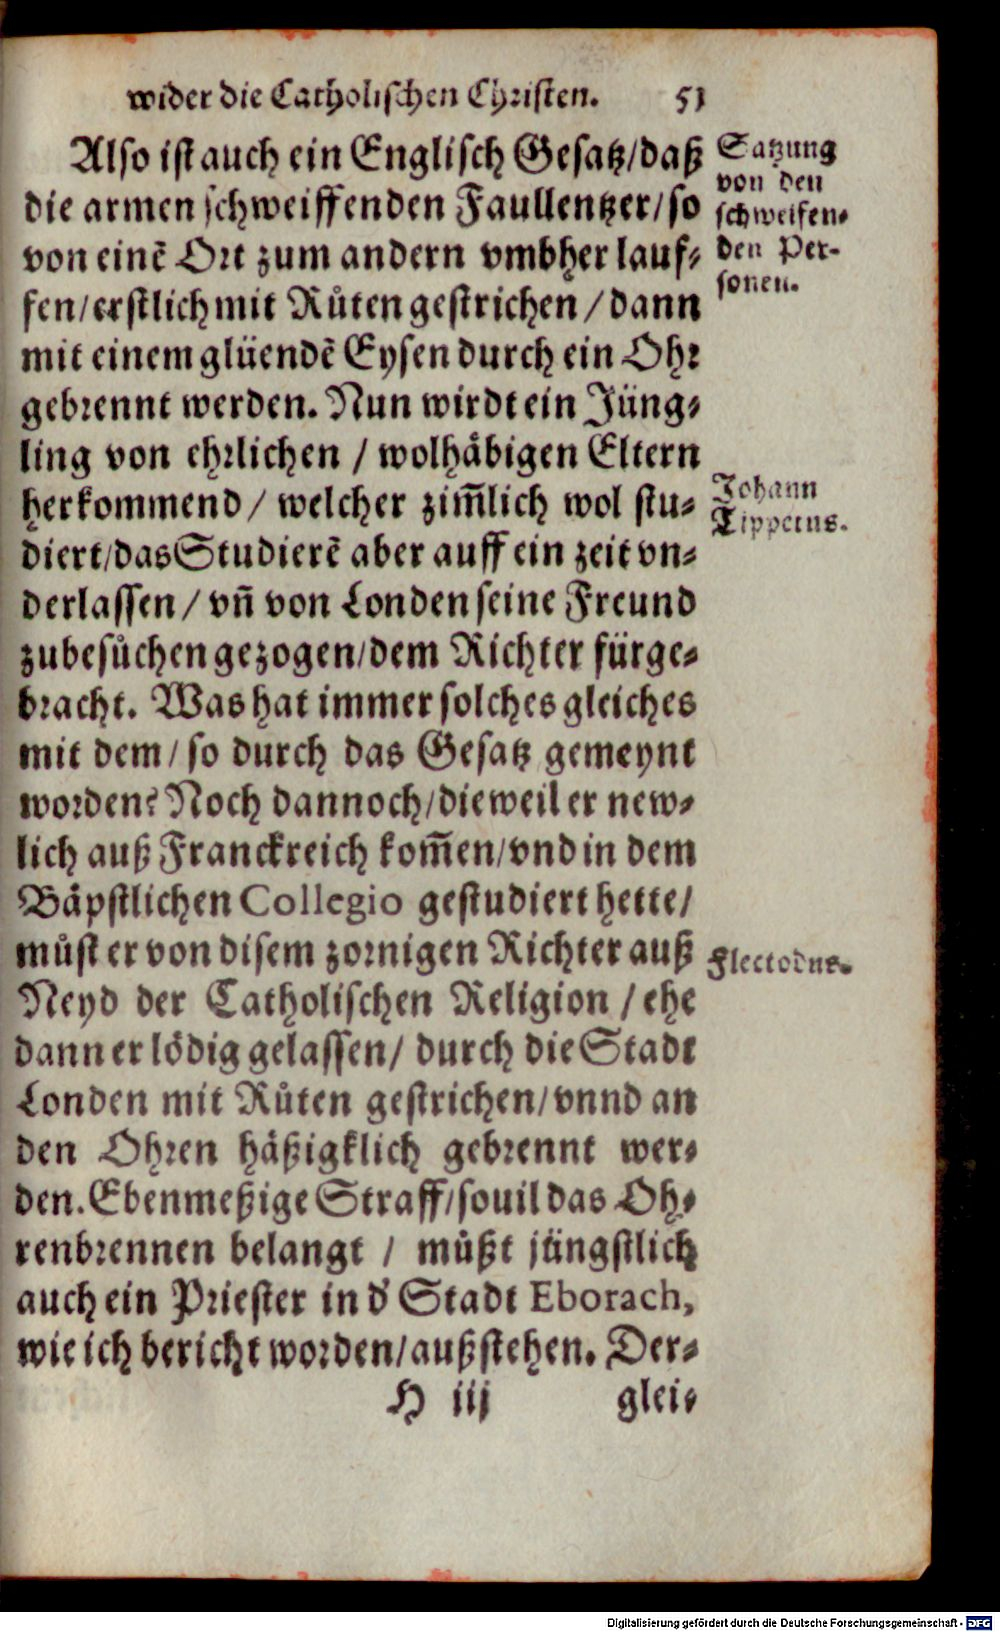 wider die Catholischen Christen. 51
Also ist auch ein Englisch Gesatz/daß
die armen schweiffenden Faullentzer/so
von einẽ Ort zum andern vmbher lauf-
fen/erstlich mit Růten gestrichen/dann
mit einem glüendẽ Eysen durch ein Ohr
gebrennt werden. Nun wirdt ein Jüng-
ling von ehrlichen / wolhäbigen Eltern
herkommend/ welcher zim̃lich wol stu-
diert/das Studierẽ aber auff ein zeit vn-
derlassen / vñ von Londen seine Freund
zubesůchen gezogen/dem Richter fürge-
bracht. Was hat immer solches gleiches
mit dem/so durch das Gesatz gemeynt
worden? Noch dannoch/dieweil er new-
lich auß Franckreich kom̃en/vnd in dem
Bäpstlichen Collegio gestudiert hette/
můst er von disem zornigen Richter auß
Neyd der Catholischen Religion / ehe
dann er lödig gelassen/ durch die Stadt
Londen mit Růten gestrichen/vnnd an
den Ohren häßigklich gebrennt wer-
den. Ebenmeßige Straff/souil das Oh-
renbrennen belangt / můßt jüngstlich
auch ein Priester in d' Stadt Eborach,
wie ich bericht worden/außstehen. Der-
H iij glei-
Satzung
von den
schweifen-
den Per-
sonen.
Johann
Tippetus.
Flectodus.
Digitalisierung gefördert durch die Deutsche Forschungsgemeinschaft - DFG